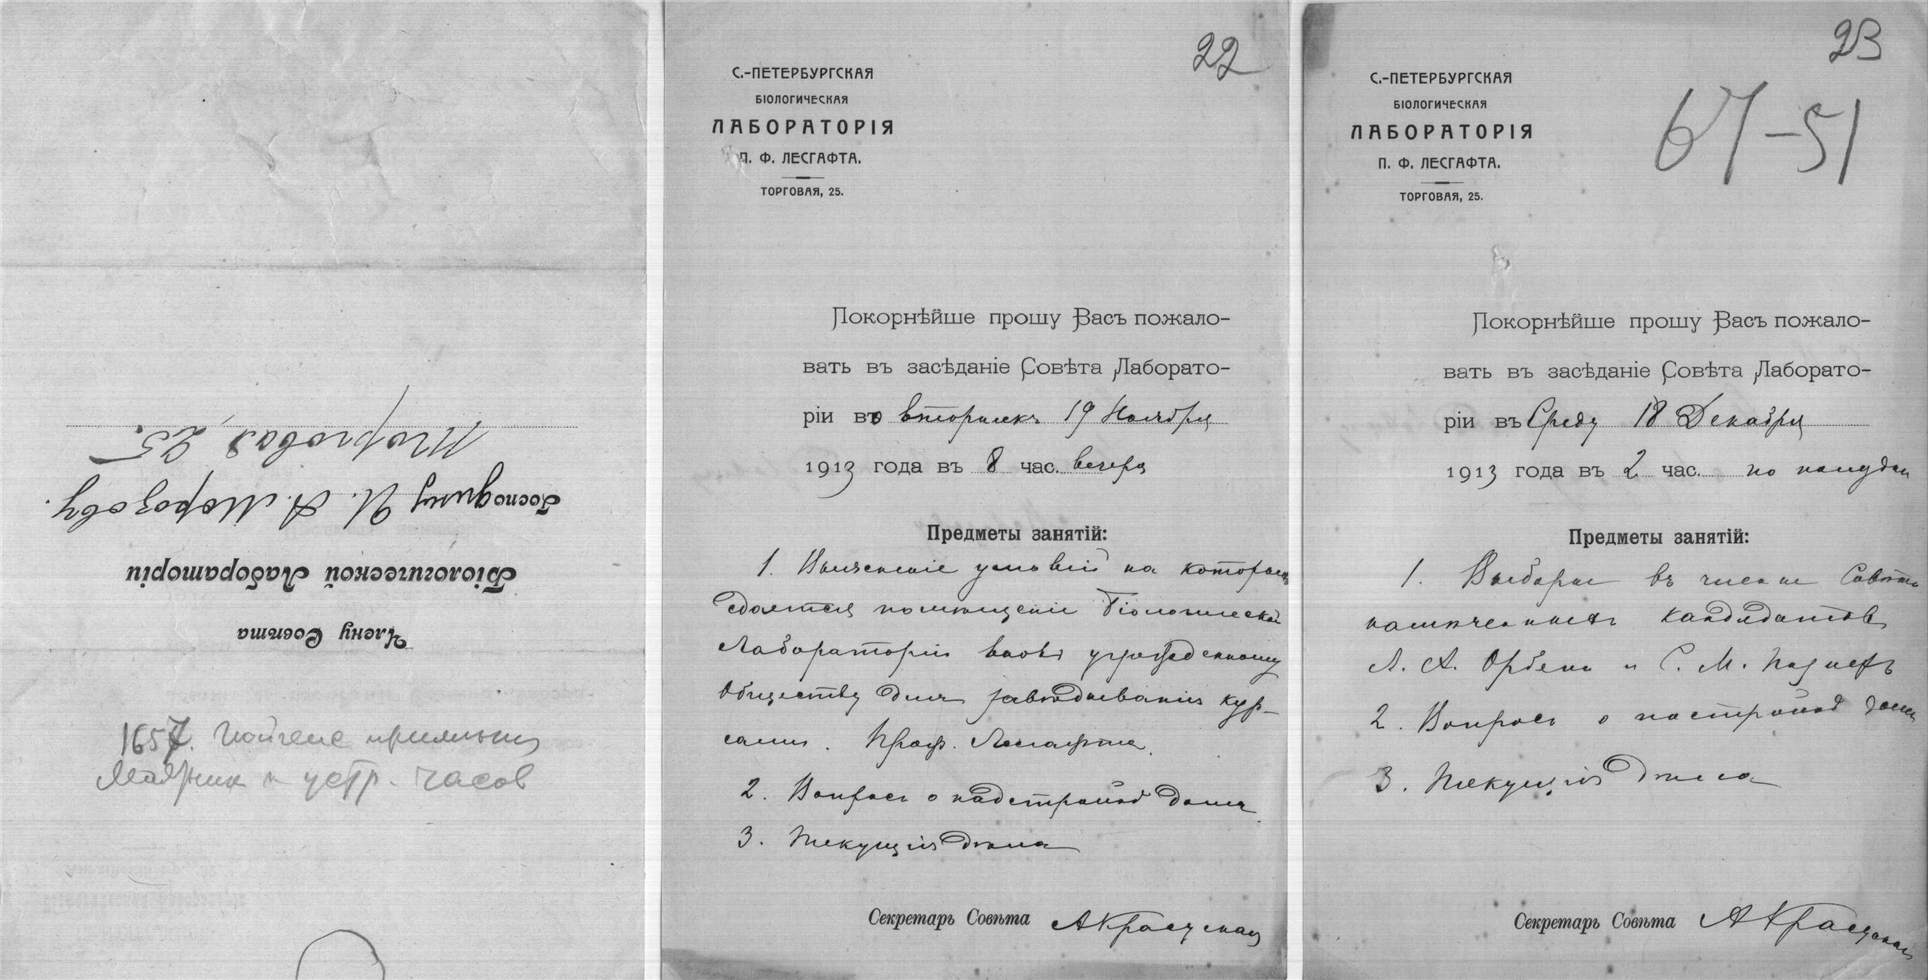 Члену Совѣта
Біологической Лабораторіи
Господину Н. А. Морозову.
Торговая, 25.
1657. Гюйгенс
маятник к устр. часов
22
С.-ПЕТЕРБУРГСКАЯ
БІОЛОГИЧЕСКАЯ
ЛАБОРАТОРІЯ
П. Ф. ЛЕСГАФТА.
ТОРГОВАЯ, 25.
Покорнѣйше прошу Васъ пожало-
вать въ засѣданіе Совѣта Лаборато-
ріи во вторникъ 19 Ноября
1913 года въ 8 час. вечера
Предметы занятій:
1. Выясненіе условій на которыхъ
сдается помѣщеніе Біологической
Лабораторіи вновь учрежденному
Обществу для завѣдыванія кур-
сами. Проф. Лесгафта.
2. Вопросъ о надстройкѣ дома
3. Текущія дѣла
Секретарь Совѣта АКрасуская
23
67-51
С.-ПЕТЕРБУРГСКАЯ
БІОЛОГИЧЕСКАЯ
ЛАБОРАТОРІЯ
П. Ф. ЛЕСГАФТА.
ТОРГОВАЯ, 25.
Покорнѣйше прошу Васъ пожало-
вать въ засѣданіе Совѣта Лаборато-
ріи въ Среду 18 Декабря
1913 года въ 2 час. по полудни
Предметы занятій:
1. Выборы въ члены Совѣта
намѣченныхъ кандидатовъ
Л. А. Орбели и С. М.
2. Вопросъ о постройкѣ дома
3. Текущія дѣла
Секретарь Совѣта АКрасуская